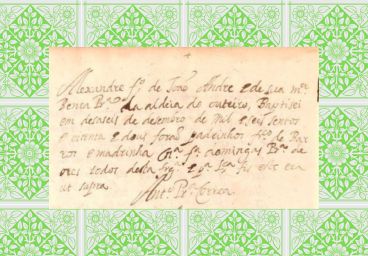 Alexandre fº de João Andre e de sua mer
Benta Pra da aldeia do outeiro, Baptisei
em deaseis de desembro de Mil e seis sentos
e oitenta e dous forão padrinhos de Bar
ros e madrinha domingas de
todos desta frega e fis este era
ut supra.
Antº Correa